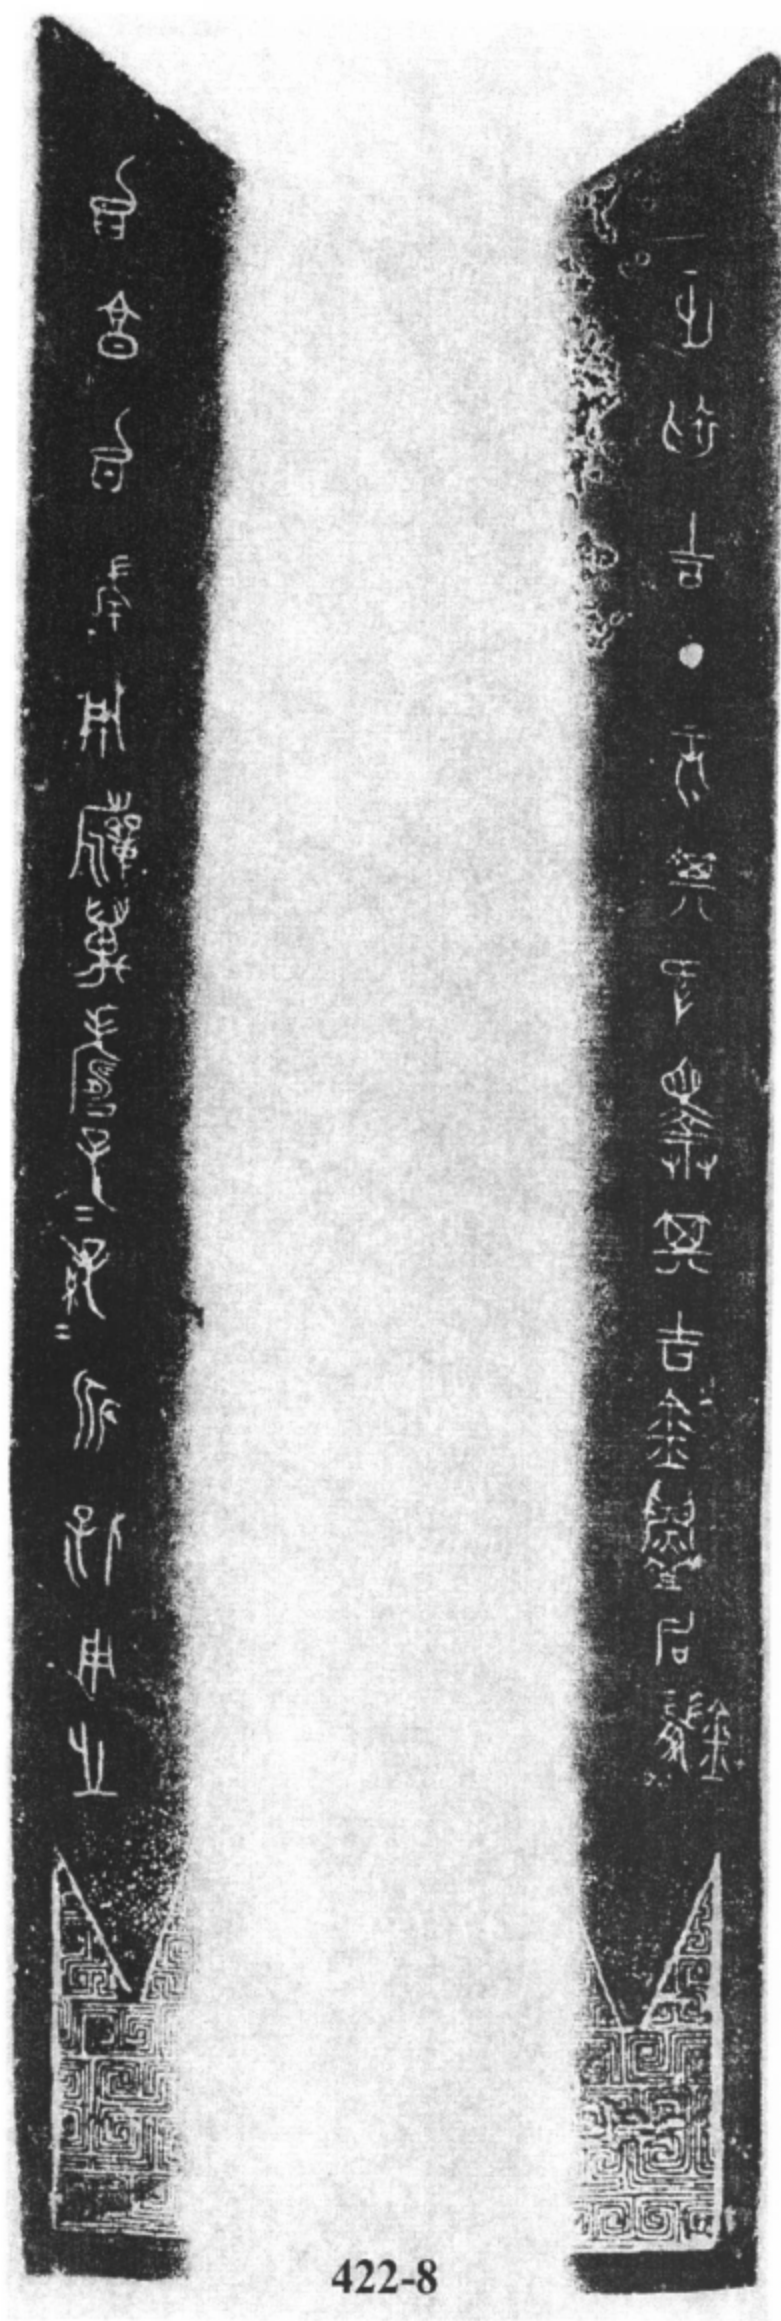 正初吉丁亥其次擇其吉金鑄句鑃
台享台孝用祈萬壽子=孫=永保用之
422-8